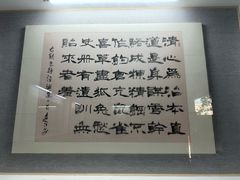 清心為治本直
道是身謀秀幹
終成棟精鋼不
作鈎倉充鼠雀
喜草盡狐兔愁
史冊有遺訓無
貽來者羞